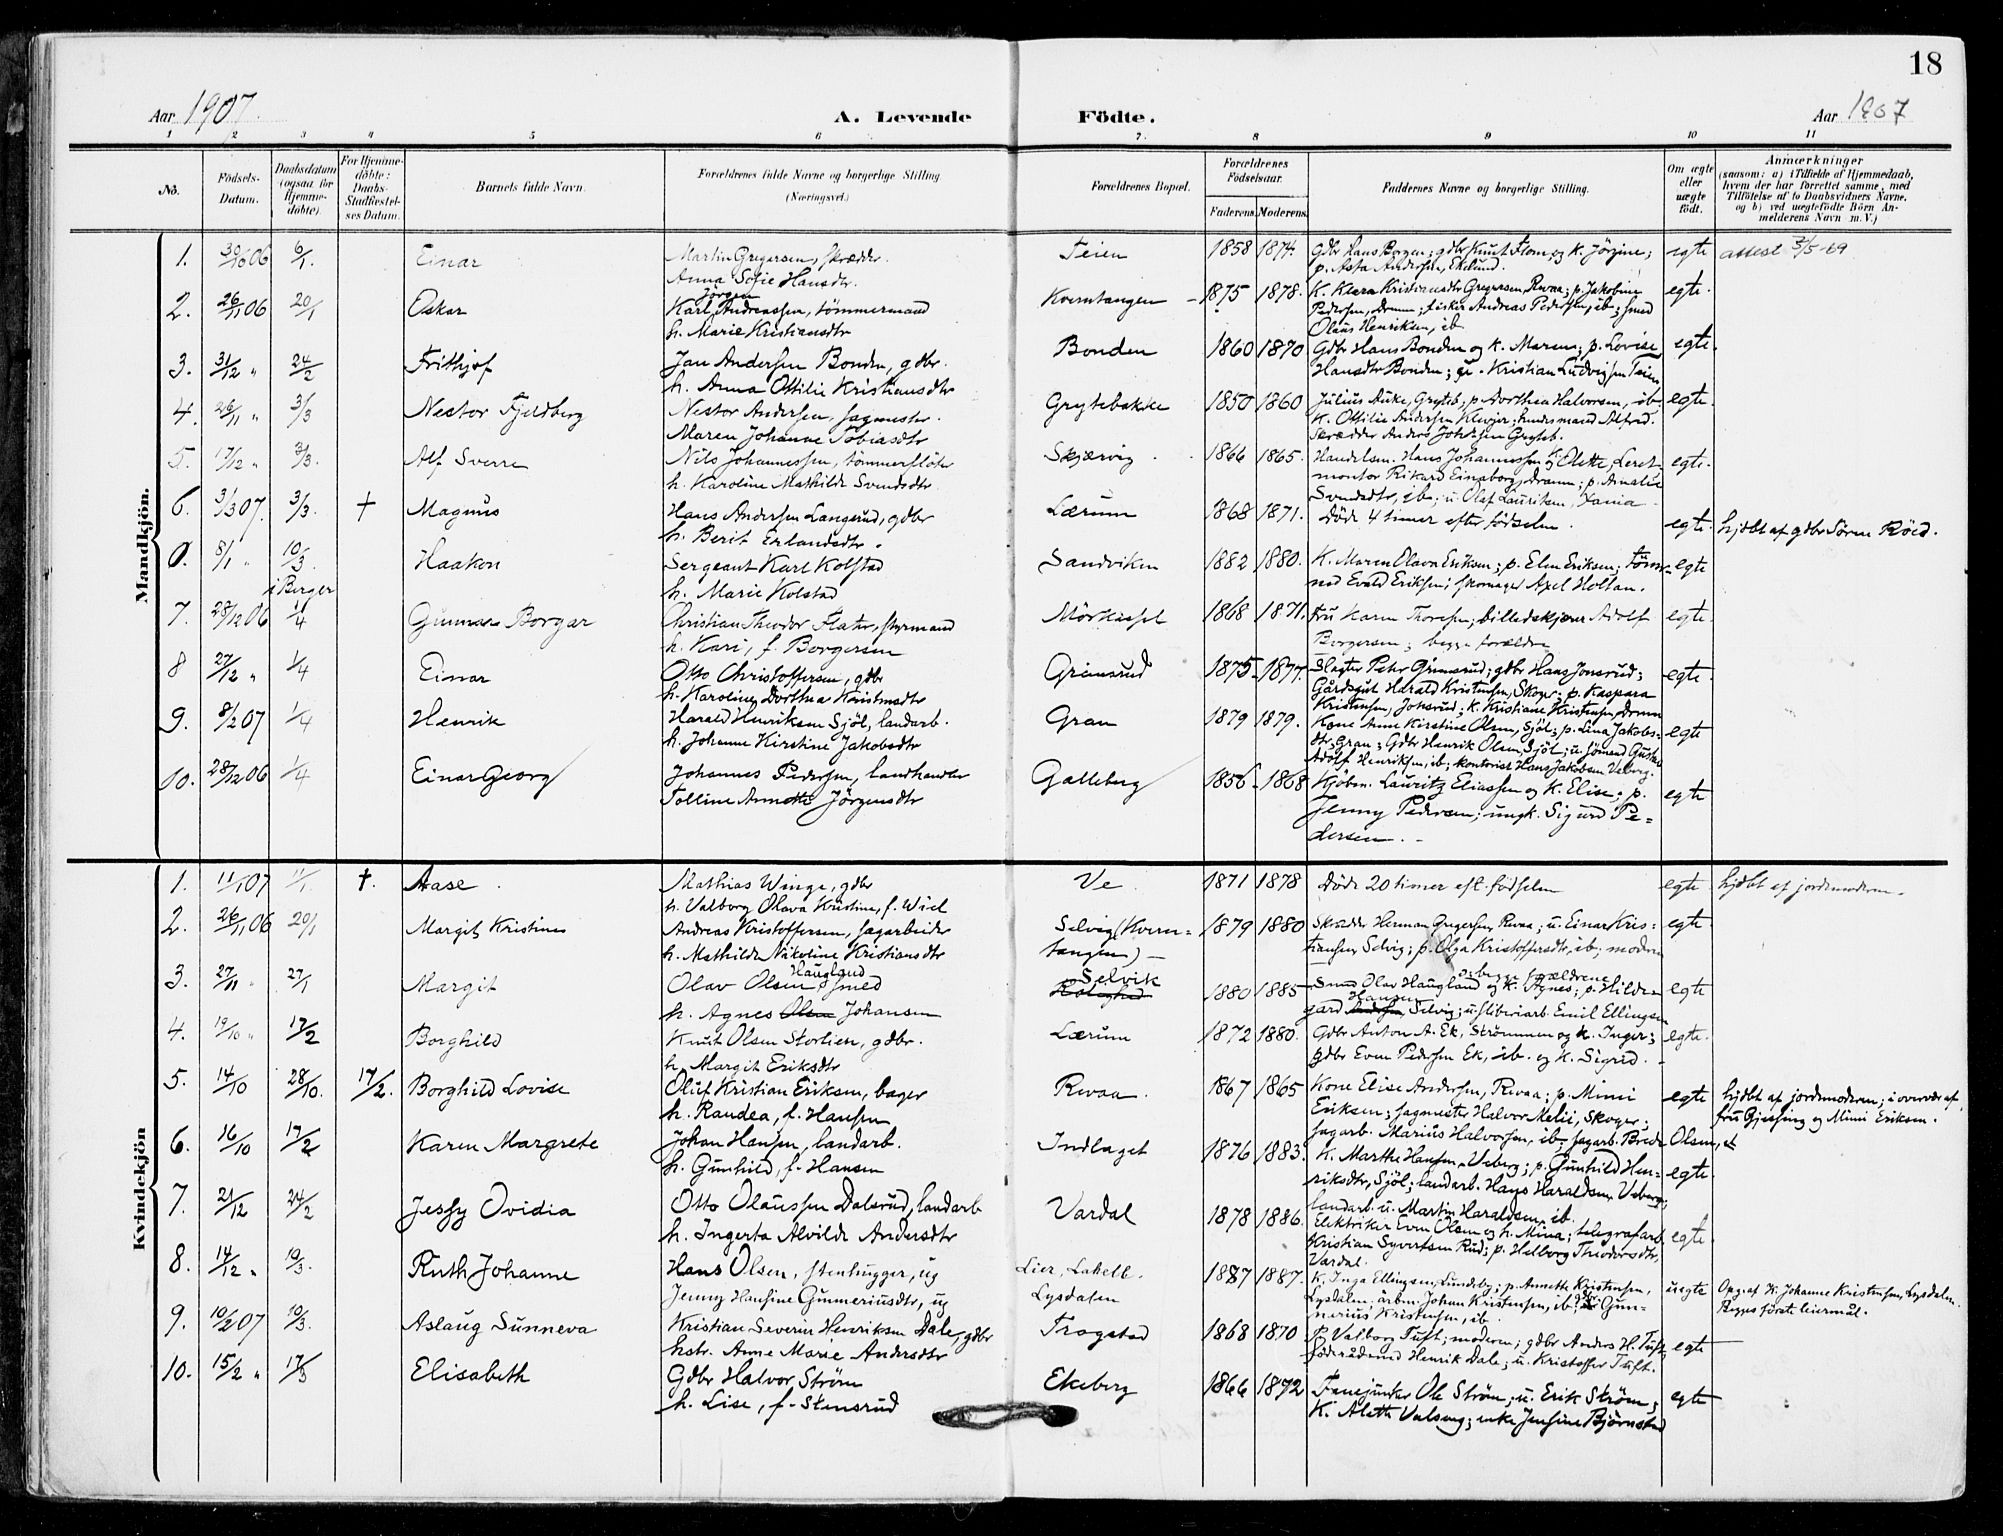 18
Aar 1907. A. Levende Födte. Aar 1907
1 2 3 4 5 6 7. 8 9 10 11
No. Födsels-Datum. Daabsdatum (ogsaa for Hjemme-döbte). For Hjemme-döbte: Daabs-Stadfæstel-ses Datum. Barnets fulde Navn. Forældrenes fulde Navne og borgerlige Stilling (Næringsvei.) Forældrenes Bopæl. Forældrenes Födselsaar. Faderens. Moderens. Faddernes Navne og borgerlige Stilling. Om ægte eller uægte födt. Anmærkninger (saasom: a) i Tilfælde af Hjemmedaab, hvem der har forrettet samme, med Tilföielse af to Daabsvidners Navne. og b) ved uægtefödte Börn An-melderens Navn m. V.)
Mandkjön.
1. 30/10 06 6/1. Einar Martin Gregersen, skrædder. Teien 1858 1874. Gdbr Hans Borgen; gdbr Knut Flom og K. Jörgine; egte attest 3/5-69
Anna Sofie Hansdtr. p. Asta Andersen, Ekelund.
2. 26/11 06 20/1 Oskar Karl Jörgen Andreassen, tömmermand Kverntangen 1875 1878. K. Klara Kristiansdtr Gregersen, Revaa; p. Jakobine egte.
h. Marie Kristiansdtr Pedersen, Dramm; fisker Andreas Pedersen, ib; smed
Olaus Henriksen, ib
3. 31/12 " 24/2 Frithjof Jan Andersen Bonden, gdbr. Bonden 1860 1870 Gdbr Hans Bonden og K. Maren; p. Lovise egte.
h. Anna Ottilie Kristiansdtr Hansdtr Bonden; u. Kristian Ludvigsen Teien
4. 26/11 " 3/3 Nestor Fjeldberg Nestor Andersen, sagmester. Grytebakke 1850 1860 Julius Auke, Gryteb; p. Dorthea Halvorsen, ib, egte.
Maren Johanne Tobiasdtr K. Ottilie Andersen Klevjer; husmand Alfred.
Skrædder Anders Johnsen Gryteb.
5. 17/12 " 3/3. Alf Sverre Nils Johannessen, tömmerflöter Skjærvig 1866 1865. Handelsm. Hans Johannessen og K. Olette, egte.
h. Karoline Mathilde Svendsdtr montör Rikard Einaborg, Dramm; p. Amalie
Svendsdtr, ib; u. Olaf Lauritsen, Xania.
6. 3/3 07. 3/3. † Magnus Hans Andersen Langerud, gdbr Lærum 1868 1871. Döde 4 timer efter födselen. egte. hjdbt af gdbr Sören Röed.
h. Berit Erlandsdtr.
0. 8/1 " 10/3. i Berger Haakon Sergeant Karl Kolstad Sandviken 1882 1880. K. Maren Olava Eriksen; p. Elen Eriksen; töm- egte
h. Marie Kolstad md Evald Eriksen; skomager Axel Holtan.
7. 28/12 06 1/4 Gunnar Borgar Christian Theodor Flater, styrmand Mörkassel 1868 1871. Fru Karen Thoresen; billedskjærer Adolf egte.
h. Kari, f. Borgersen Borgersen; begge forældre
8 27/12 " 1/4 Einar Otto Christoffersen, gdbr Grimsrud 1875 1877. Slagter Peter Grimsrud; gdbr Hans Jonsrud; egte.
h. Karoline Dorthea Kristensdtr Gårdsgut Harald Kristensen, Skoger; p. Kaspara
Kristensen, Johsrud; K. Kristiane Kristensen, Dramm
9. 8/2 07 1/4 Henrik Harald Henriksen Sjöl, landarb. Gran 1879 1879. Kone Anne Kirstine Olsen, Sjöl; p. Lina Jakobs- egte
h. Johanne Kirstine Jakobsdtr dtr, Gran; Gdbr Henrik Olsen, Sjöl; u. sömand Gustav
Adolf Henriksen, ib; kontorist Hans Jakobsen Veberg.
10. 28/12 06 1/4 Einar Georg Johannes Pedersen, landhandler Galleberg 1856 1868 Kjöbm. Lauritz Eliassen og K. Elise; p. egte
Tolline Annette Jörgensdtr Jenny Pedersen; ungk. Sigurd Pe-
dersen.
Kvindekjön
1. 11/1 07 11/1. †. Aase Mathias Winge, gdbr Ve 1871 1878 Döde 20 timer eft. födselen egte hjdbt af jordmoderen.
h. Valborg Olava Kristine, f. Wiel
2. 26/11 06 20/1 Margit Kristine Andreas Kristoffersen, sagarbeider Selvig (Kvern- 1879 1880 Skrædder Herman Gregersen, Revaa; u. Einar Kris- egte
h. Mathilde Nikoline Kristiansdtr tangen) tiansen, Selvig; p. Olga Kristoffersdtr, ib; moderen
3. 27/11 " 27/1 Margit Olav Olsen Haugland, smed Selvik 1880 1885 Smed Olav Haugland og K. Agnes; p. Hilde- egte
og begge forældrene
h. Agnes Olsen Johansen gard Hansen, Selvig; u. sliberiarb. Emil Ellingsen
4. 19/10 " 17/2 Borghild Knut Olsen Stortien, gdbr. Lærum 1872 1880. Gdbr Anton A. Ek, Strömmen og K. Inger; egte.
h. Margit Eriksdtr gdbr Even Pedersen Ek, ib. og K. Sigrid.
5. 14/10 28/10. 17/2. Borghild Lovise Oluf Kristian Eriksen, bager Revaa. 1867 1865 Kone Elise Andersen, Revaa; p. Mimi egte hjdbt af jordmoderen; i overvær af
h. Randea, f. Hansen Eriksen; sagmester Halvor Melii, Skoger; fru Gjessing og Mimi Eriksen.
sagarb. Marius Halvorsen, ib; sagarb. Brede Olsen, ib
6. 16/10 17/2 Karen Margrete Johan Hansen, landarb. Indlaget 1876 1883. K. Marthe Hansen, Veberg; p. Gunhild Hen- egte.
h. Gunhild, f. Hansen riksdtr, Sjöl; landarb. Hans Haraldsen Veberg;
landarb. u. Martin Haraldsen, ib.
7. 21/12 24/2 Jessy Ovidia Otto Olaussen Dalsrud, landarb Vardal 1878 1886. Elektriker Even Olsen og h. Mina; telegrafarb. egte.
h. Ingerta Alvilde Andersdtr Kristian Syvertsen Rud; p. Helborg Theodorsdtr,
Vardal.
8. 14/12 " 10/3. Ruth Johanne Hans Olsen, stenhugger, ug Lier, Lahell. 1887 1887. K. Inga Ellingsen, Lundeby; p. Annette Kristensen, uegte Opg. af K. Johanne Kristensen, Lysdalen.
Jenny Hansine Gunneriusdtr, ug Lysdalen Lysdalen, arbm. Johan Kristensen, ib; Gun- Begges förste leiermål.
nerius Kristensen, ib.
9. 10/2 07 10/3. Aslaug Sunneva Kristian Severin Henriksen Dale, gdbr Trogstad 1868 1870 p. Valborg Tuft; moderen; gdbr Anders H. Tuft; egte
hstr. Anne Marie Andersdtr föderådsmd Henrik Dale; u. Kristoffer Tuft.
10. 15/2 " 17/3 Elisabeth Gdbr Halvor Ström Ekeberg 1866 1872 Fanejunker Ole Ström; u. Erik Ström; egte
h. Lise, f. Stensrud K. Alette Valseng; enke Jensine Björnstad